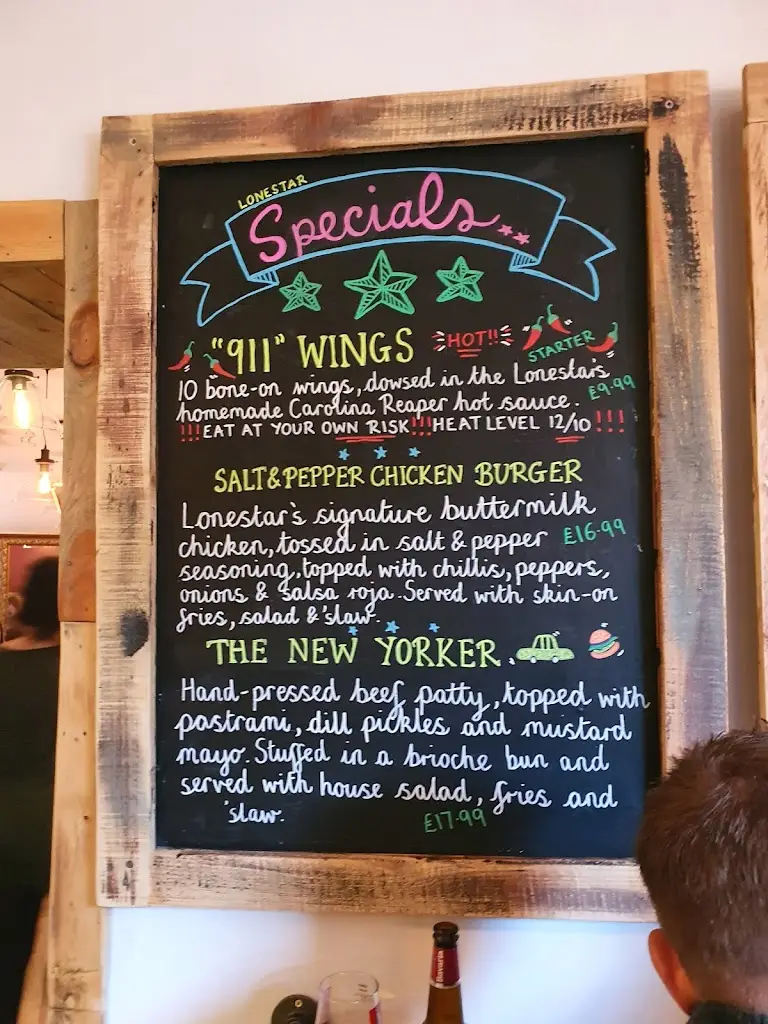 LONESTAR
Specials..
"911" WINGS HOT!! STARTER
10 bone-on wings, dowsed in the Lonestar's
homemade Carolina Reaper hot sauce. £9.99
!!!EAT AT YOUR OWN RISK!!! HEAT LEVEL 12/10 !!!
SALT & PEPPER CHICKEN BURGER
Lonestar's signature buttermilk
chicken, tossed in salt & pepper £16.99
seasoning, topped with chillis, peppers,
onions & salsa roja. Served with skin-on
fries, salad & 'slaw.
THE NEW YORKER.
Hand-pressed beef patty, topped with
pastrami, dill pickles and mustard
mayo. Stuffed in a brioche bun and
served with house salad, fries and
'slaw. £17.99
Bavaria